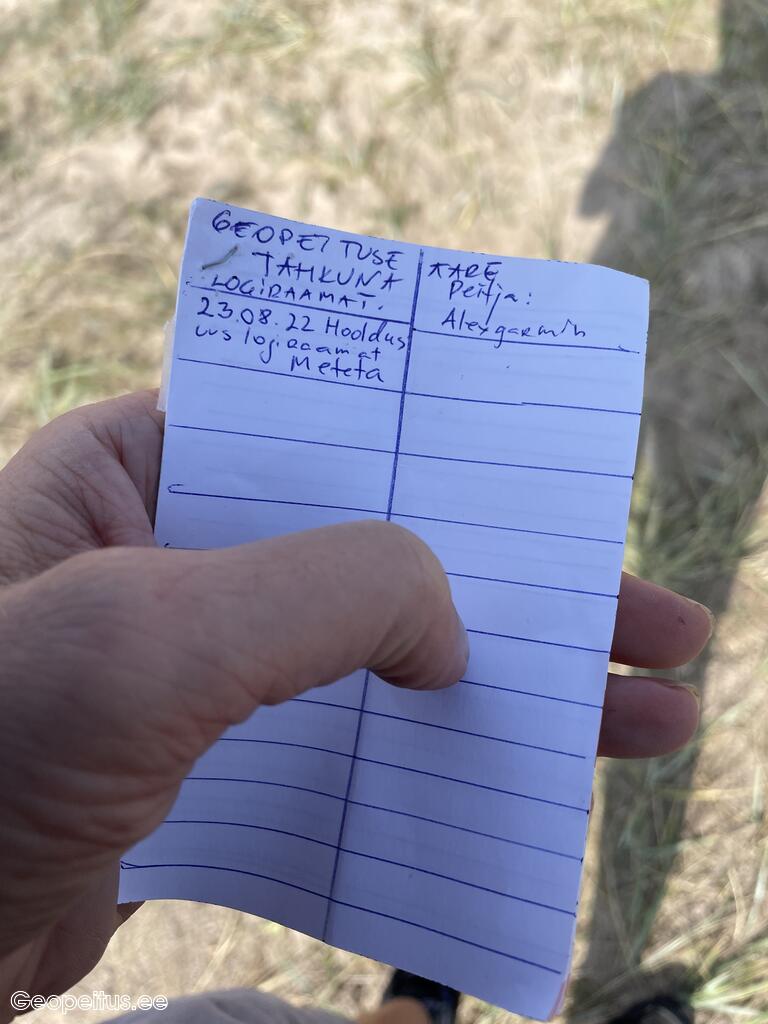 GEOPEITUSE
TAHKUNA
LOGIRAAMAT.
23.08.22 Hooldus
uus logiraamat
Meteta
KARE
Peitja:
Alexgarmin
Geopeitus.ee